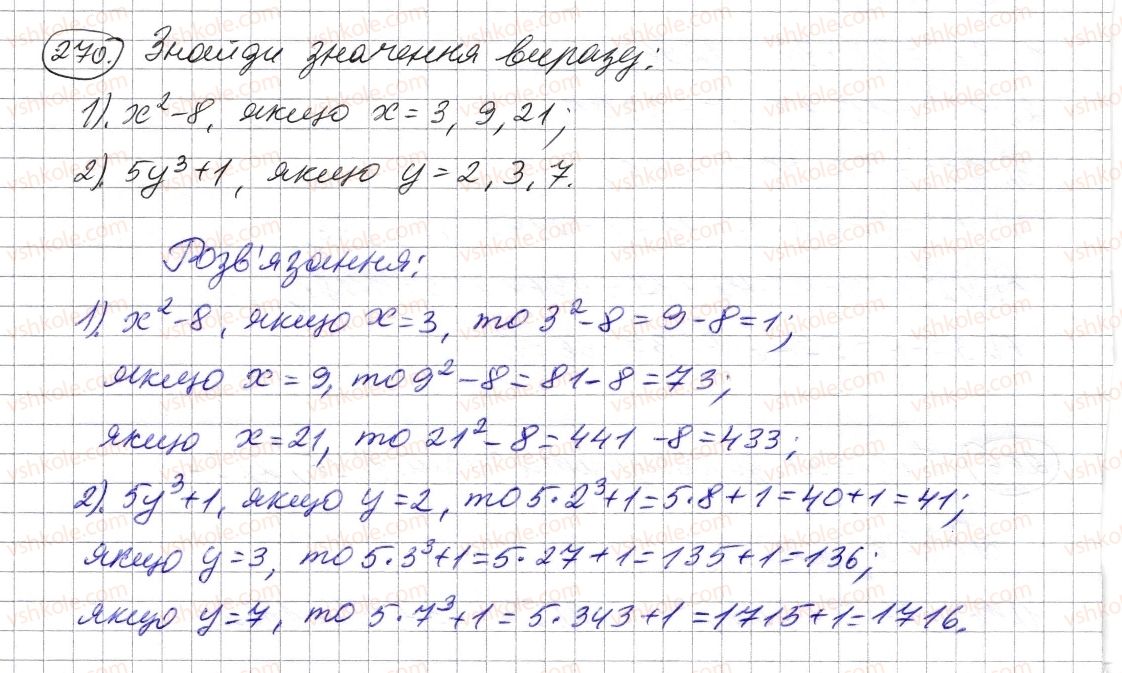 270. Знайди значення виразу:
1). x²-8, якщо x=3, 9, 21;
2). 5y³+1, якщо y=2, 3, 7.
Розв'язання:
1). x²-8, якщо x=3, то 3²-8=9-8=1;
якщо x=9, то 9²-8=81-8=73;
якщо x=21, то 21²-8=441-8=433;
2). 5y³+1, якщо y=2, то 5·2³+1=5·8+1=40+1=41;
якщо y=3, то 5·3³+1=5·27+1=135+1=136;
якщо y=7, то 5·7³+1=5·343+1=1715+1=1716.